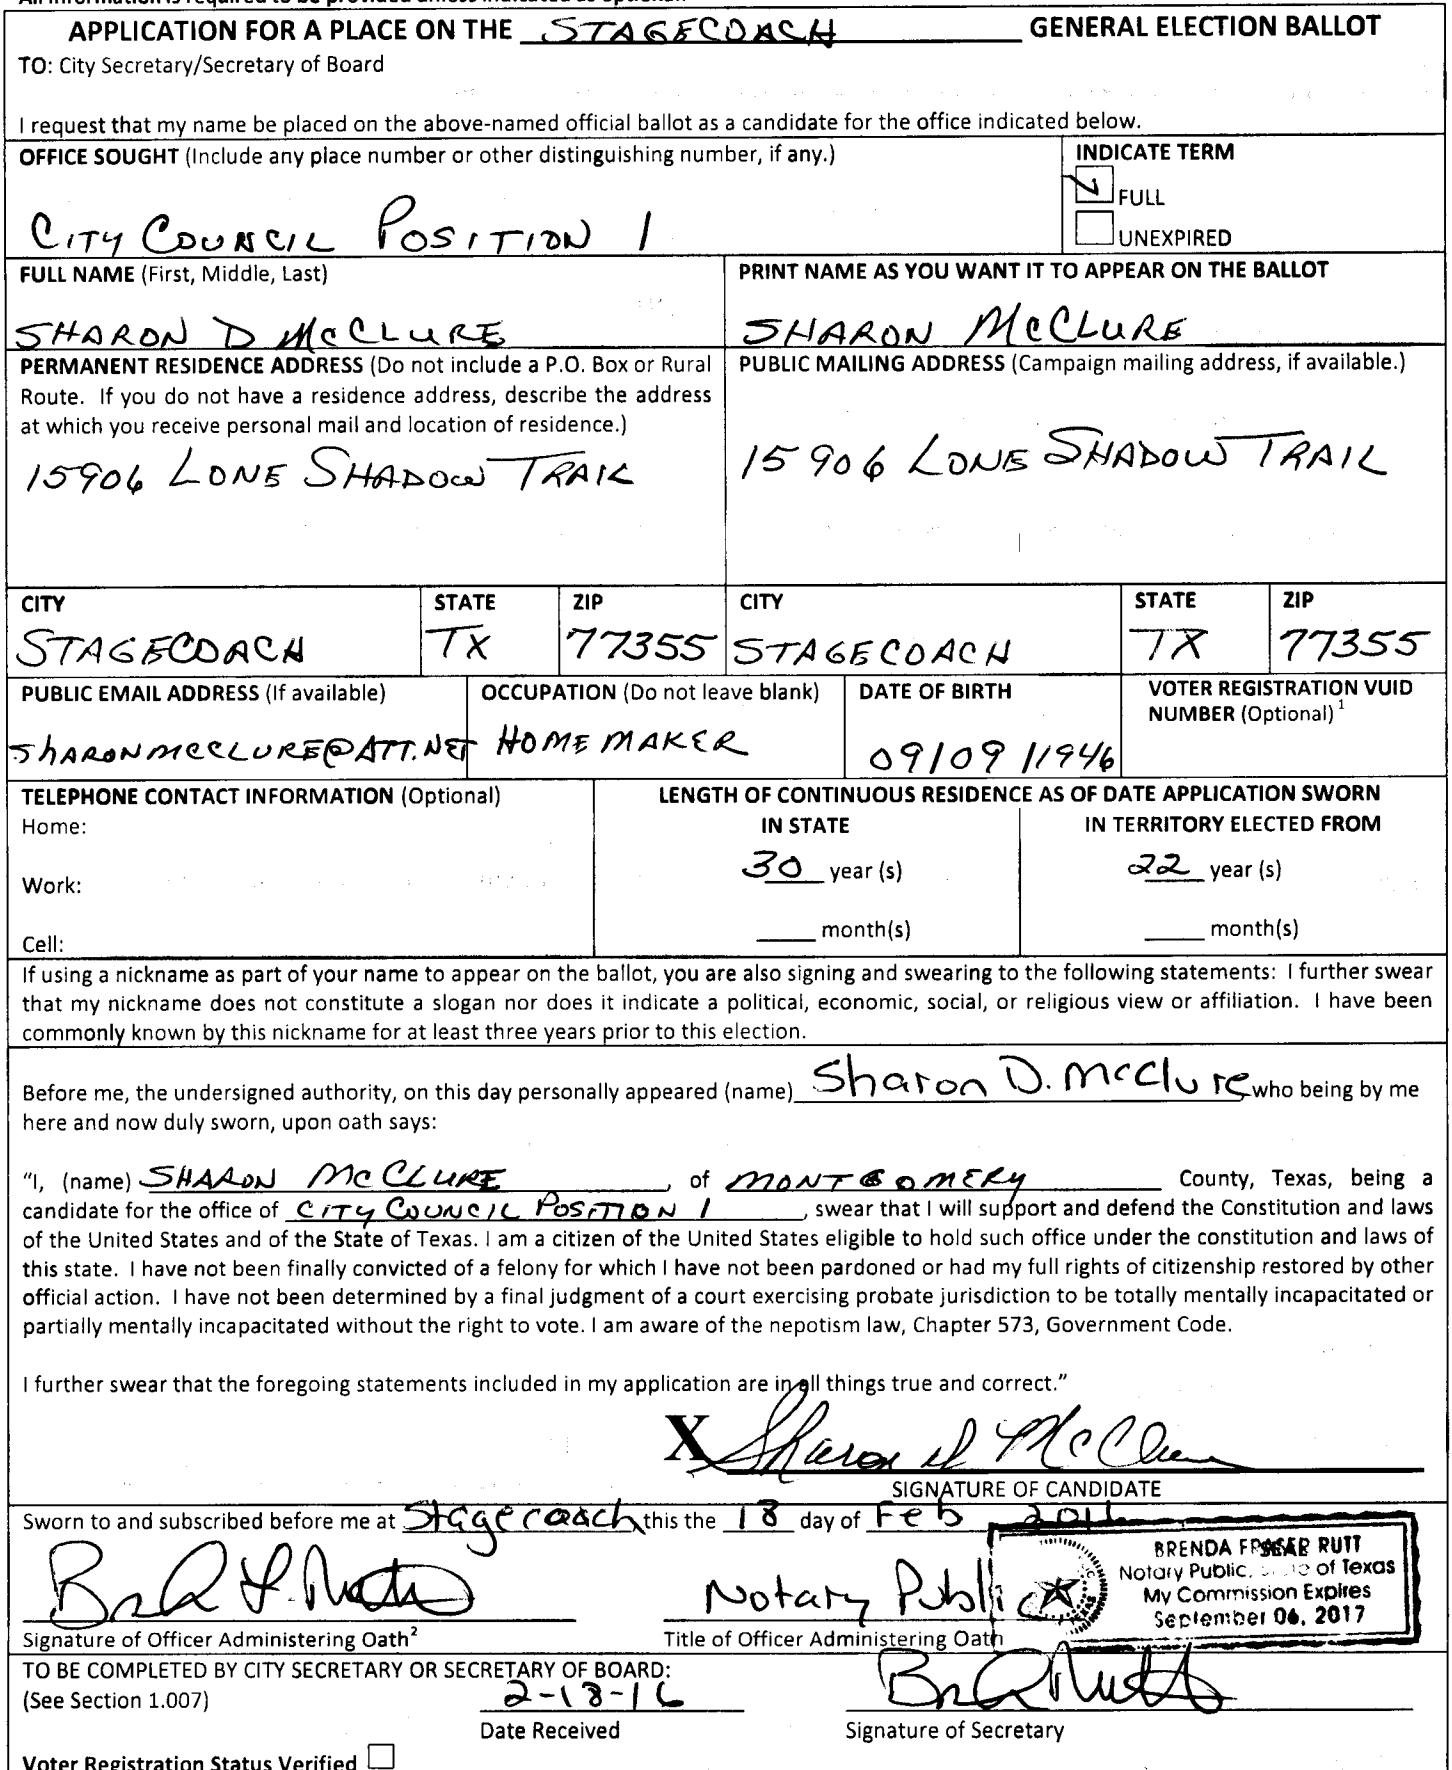 APPLICATION FOR A PLACE ON THE STAGECOACH GENERAL ELECTION BALLOT
TO: City Secretary/Secretary of Board
I request that my name be placed on the above-named official ballot as a candidate for the office indicated below.
OFFICE SOUGHT (Include any place number or other distinguishing number, if any.)
CITY COUNCIL POSITION 1
INDICATE TERM
FULL
UNEXPIRED
FULL NAME (First, Middle, Last)
SHARON D McCLURE
PRINT NAME AS YOU WANT IT TO APPEAR ON THE BALLOT
SHARON McCLURE
PERMANENT RESIDENCE ADDRESS (Do not include a P.O. Box or Rural
Route. If you do not have a residence address, describe the address
at which you receive personal mail and location of residence.)
15906 LONE SHADOW TRAIL
PUBLIC MAILING ADDRESS (Campaign mailing address, if available.)
15906 LONE SHADOW TRAIL
CITY
STAGECOACH
STATE
TX
ZIP
77355
CITY
STAGECOACH
STATE
TX
ZIP
77355
PUBLIC EMAIL ADDRESS (If available)
shARONMCCLURE@ATT.NET
OCCUPATION (Do not leave blank)
HOMEMAKER
DATE OF BIRTH
09/09/1946
VOTER REGISTRATION VUID
NUMBER (Optional) 1
TELEPHONE CONTACT INFORMATION (Optional)
Home:
Work:
Cell:
LENGTH OF CONTINUOUS RESIDENCE AS OF DATE APPLICATION SWORN
IN STATE
30 year (s)
month(s)
IN TERRITORY ELECTED FROM
22 year (s)
month(s)
If using a nickname as part of your name to appear on the ballot, you are also signing and swearing to the following statements: I further swear
that my nickname does not constitute a slogan nor does it indicate a political, economic, social, or religious view or affiliation. I have been
commonly known by this nickname for at least three years prior to this election.
Before me, the undersigned authority, on this day personally appeared (name) Sharon D. McClure who being by me
here and now duly sworn, upon oath says:
"I, (name) SHARON McCLURE, of MONTGOMERY County, Texas, being a
candidate for the office of CITY COUNCIL POSITION 1, swear that I will support and defend the Constitution and laws
of the United States and of the State of Texas. I am a citizen of the United States eligible to hold such office under the constitution and laws of
this state. I have not been finally convicted of a felony for which I have not been pardoned or had my full rights of citizenship restored by other
official action. I have not been determined by a final judgment of a court exercising probate jurisdiction to be totally mentally incapacitated or
partially mentally incapacitated without the right to vote. I am aware of the nepotism law, Chapter 573, Government Code.
I further swear that the foregoing statements included in my application are in all things true and correct."
X Sharon D McClure
SIGNATURE OF CANDIDATE
Sworn to and subscribed before me at Stagecoach this the 18 day of Feb
BRENDA FRASER RUTT
Notary Public, of Texas
My Commission Expires
September 06, 2017
Notary Public
Signature of Officer Administering Oath2
Title of Officer Administering Oath
TO BE COMPLETED BY CITY SECRETARY OR SECRETARY OF BOARD:
(See Section 1.007)
2-18-16
Date Received
Signature of Secretary
Voter Registration Status Verified